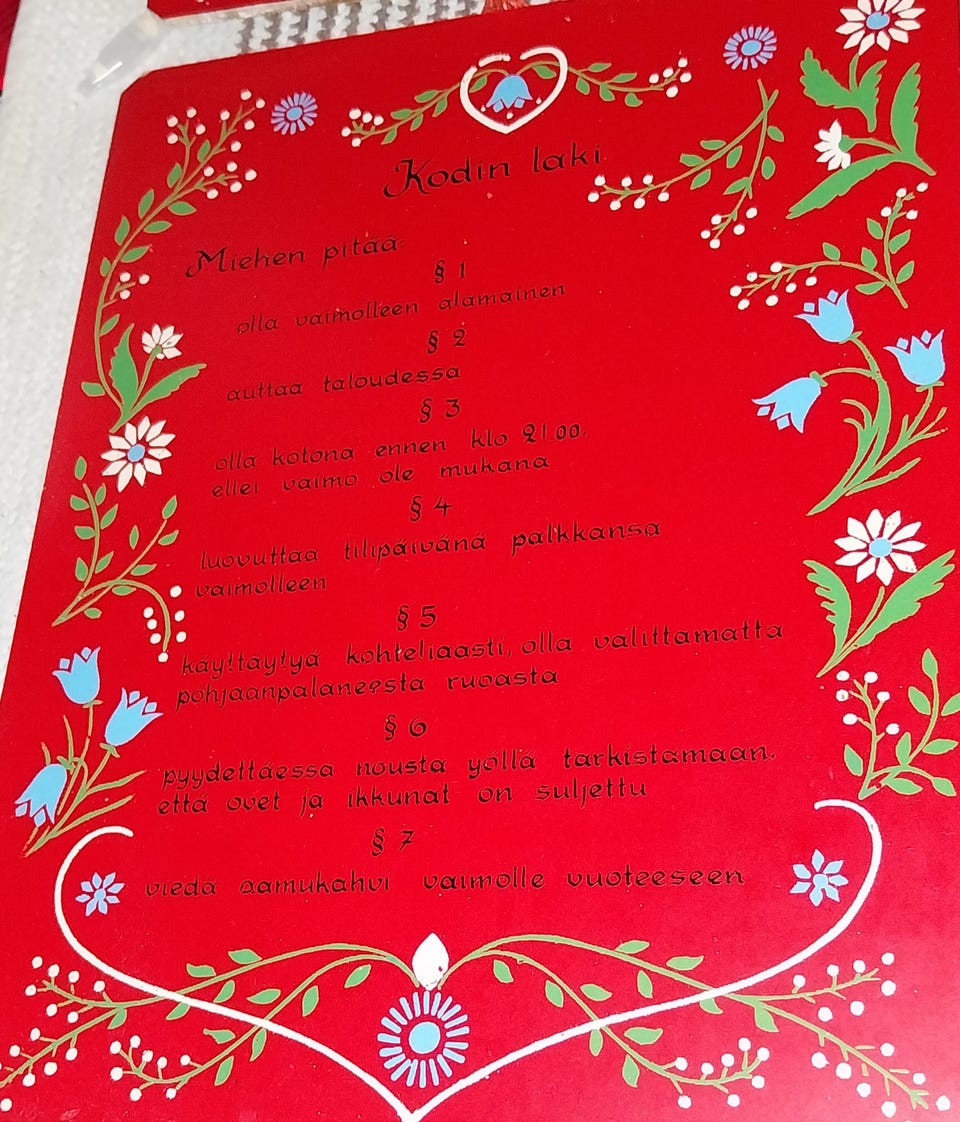 Kodin laki
Miehen pitää:
§ 1
olla vaimolleen alamainen
§ 2
auttaa taloudessa
§ 3
olla kotona ennen klo 21.00.
ellei vaimo ole mukana
§ 4
luovuttaa tilipäivänä palkkansa
vaimolleen
§ 5
käyttäytyä kohteliaasti, olla välittämättä
pohjaanpalaneesta ruoasta
§ 6
pyydettäessä nousta yöllä tarkistamaan.
että ovet ja ikkunat on suljettu
§ 7
viedä aamukahvi vaimolle vuoteeseen